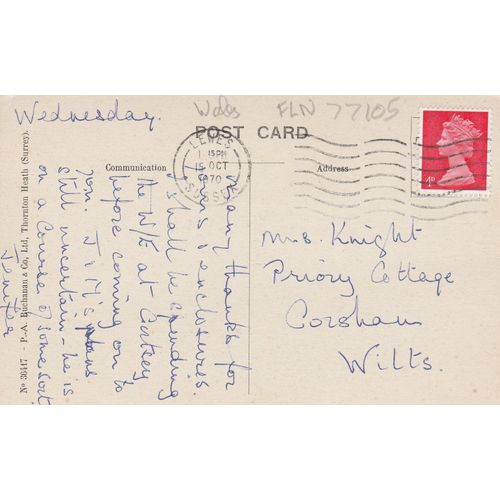 Wednesday.
Wales FLN 77105
POST CARD
LEWES
1 15PM
15 OCT
1970
SUSSEX
4D
Communication
Address
Many thanks for
yours & enclosures.
I shall be spending
the W/E at
before coming on to
you. J & M's plans
still uncertain - he is
on a Course of some sort
Jenifer
Mrs. Knight
Priory Cottage
Corsham
Wilts.
No 36417 - P.A. Buchanan & Co, Ltd, Thornton Heath (Surrey).